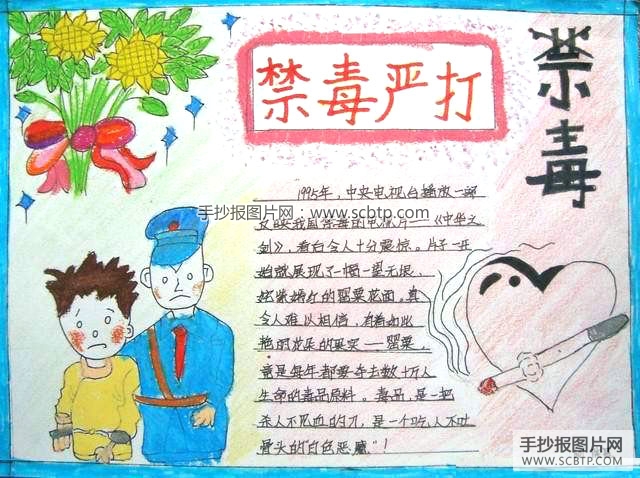 禁毒严打
禁毒
1995年，中央电视台播放一部
反映我国禁毒的电视片——《中华之
剑》，看白令人十分震惊。片子一开
始就展现了一幅一望无垠、
姹紫嫣红的罂粟花面，真
令人难以相信，有着如此
艳丽花朵的果实——罂粟，
竟是每年都要夺去数十万人
生命的毒品原料。毒品，是一把
杀人不见血的刀，是一个吃人不吐
骨头的"白色恶魔"！
手抄报图片网：www.scbtp.com
手抄报图片网
WWW.SCBTP.COM